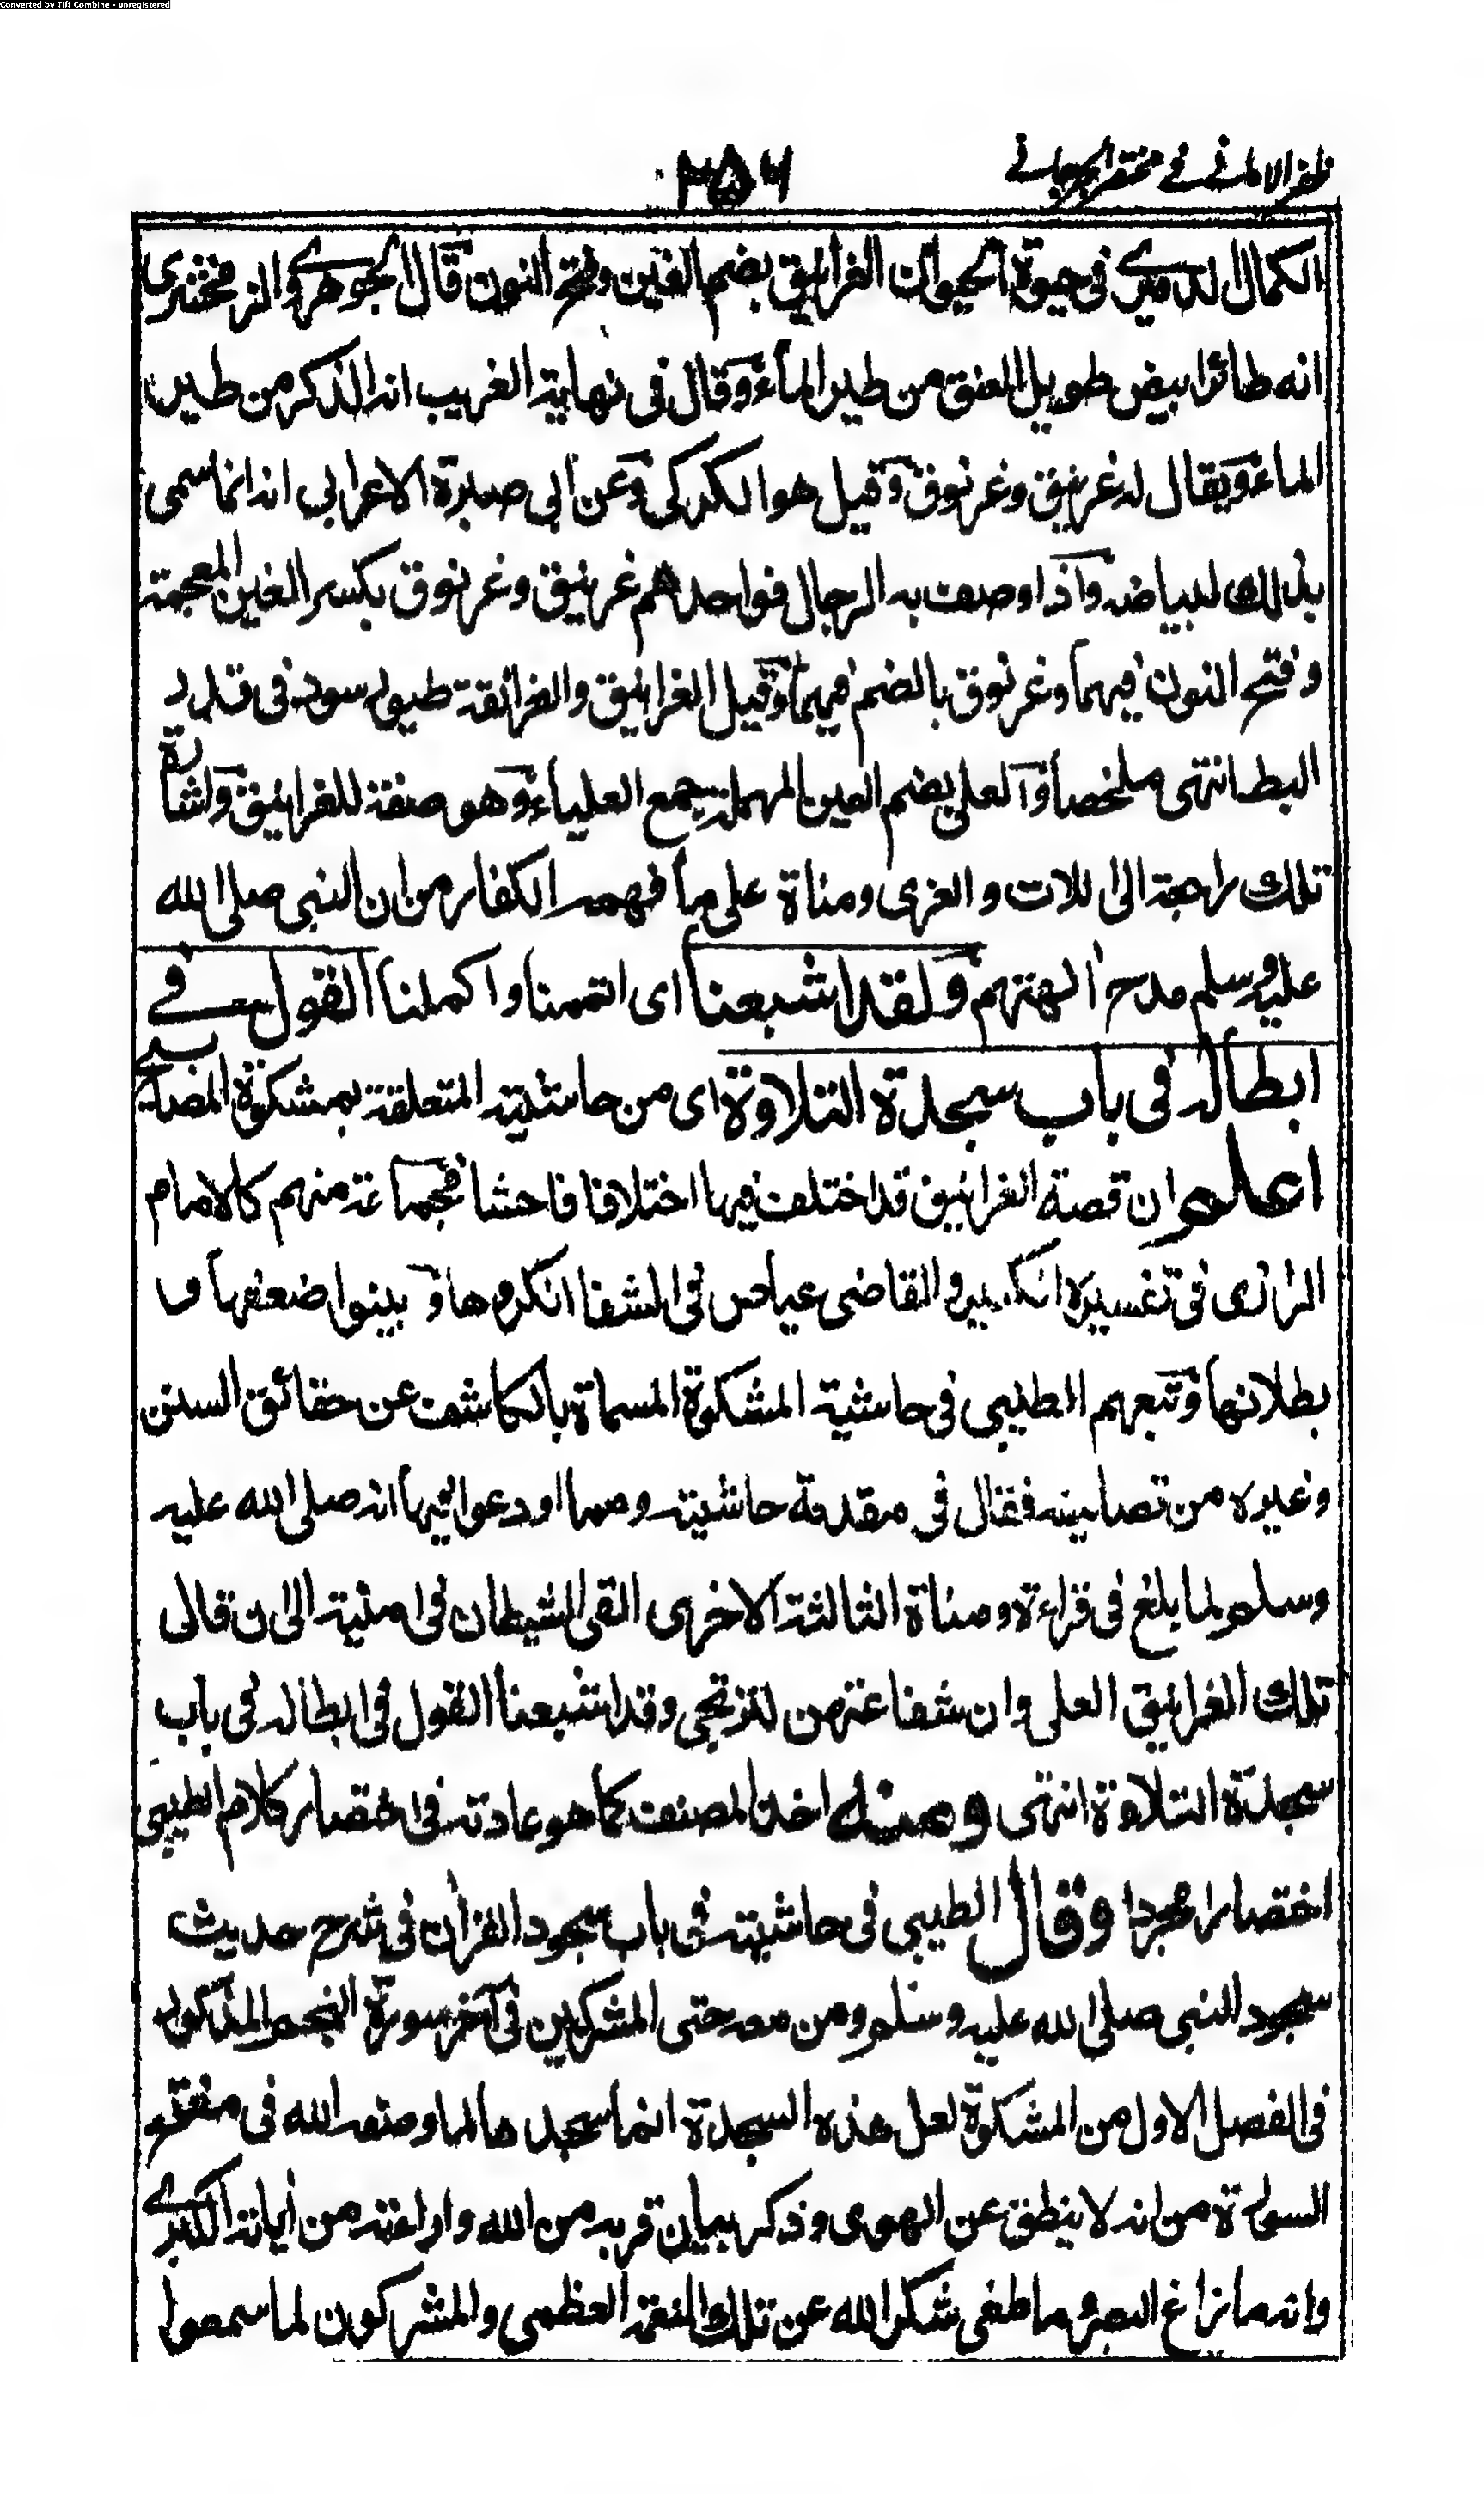 Converted by Tiff Combine - unregistered
ظفر الامانے فے مختصر الجرجانے
۲۵۶
الكمال الدميرى فى حيوة الحيوان الغرانيق بضم الغين وفتح النون قال الجوهرى والزمخشرى
انه طائر ابيض طويل العنق من طير الماء وقال فى نهاية الغريب انه الذكر من طير
الماء ويقال له غرنيق وغرنوق وقيل هو الكركى وعن ابى صبرة الاعرابى انه انما سمى
بذلك لبياضه واذا وصف به الرجال فواحدهم غرنيق وغرنوق بكسر الغين المعجمة
وفتح النون فيهما وغرنوق بالضم فيهما وقيل الغرانيق والغرانقة طيور سود فى قدر
البط انتهى ملخصا والعلى بضم العين المهملة جمع العلياء وهو صفة للغرانيق واشارة
تلك راجعة الى اللات والعزى ومناة على ما فهمه الكفار من ان النبى صلى الله
عليه وسلم مدح الهتهم ولقد اشبعنا اى اتممنا واكملنا القول فے
ابطاله فى باب سجدة التلاوة اى من حاشيته المتعلقة بمشكوة المصابيح
اعلم ان قصة الغرانيق قد اختلف فيها اختلافا فاحشا فجماعة منهم كالامام
الرازى فى تفسيره الكبير والقاضى عياض فى الشفا انكروها وبينوا ضعفها و
بطلانها وتبعهم الطيبى فى حاشية المشكوة المسماة بالكاشف عن حقائق السنن
وغيره من تصانيفه فقال فى مقدمة حاشيته ومما اودعوا فيها انه صلى الله عليه
وسلم لما بلغ فى قراءة ومناة الثالثة الاخرى القى الشيطان فى امنيته الى ان قال
تلك الغرانيق العلى وان شفاعتهن لترتجى وقد اشبعنا القول فى ابطاله فى باب
سجدة التلاوة انتهى ومنه اخذ المصنف كما هو عادته فى اختصار كلام الطيبى
اختصارا مجردا وقال الطيبى فى حاشيته فى باب سجود القرآن فى شرح حديث
سجود النبى صلى الله عليه وسلم ومن معه حتى المشركين فى آخر سورة النجم المذكور
فى الفصل الاول من المشكوة لعل هذه السجدة انما سجدها لما وصفه الله فى مفتتح
السورة من انه لا ينطق عن الهوى وذكر بيان قربه من الله واراءته من آياته الكبرے
وانه ما زاغ البصر وما طغى شكرا لله عن تلك النعمة العظمى والمشركون لما سمعوا